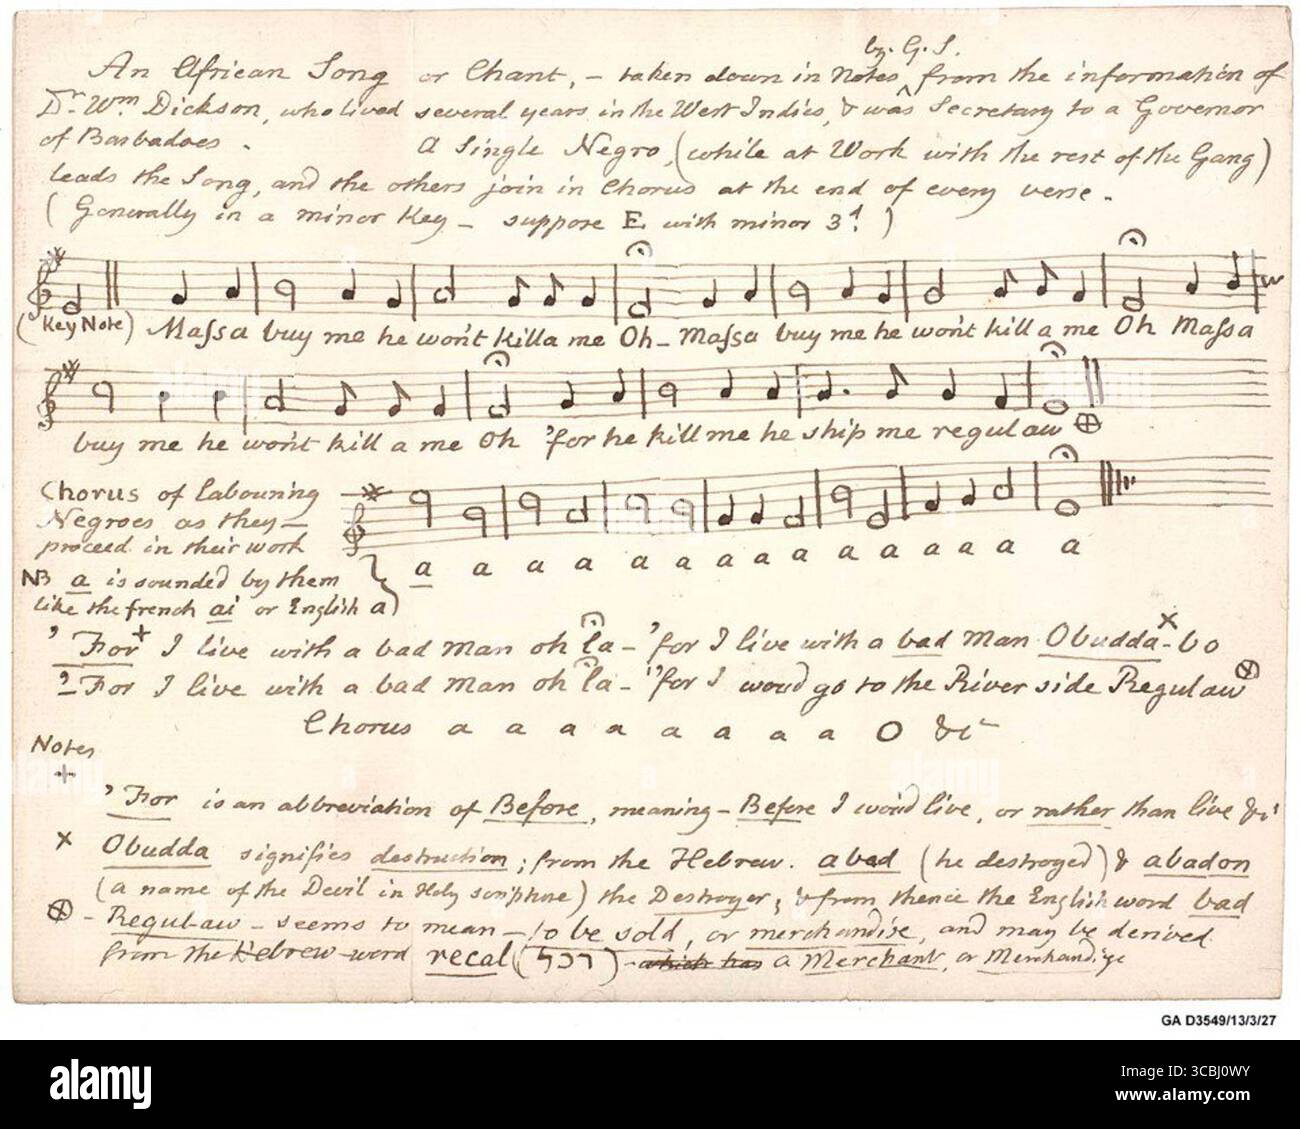 by G. S.
An African Song or Chant, – taken down in Notes, from the information of
Dr. Wm. Dickson, who lived several years in the West Indies, & was Secretary to a Governor
of Barbadoes. A Single Negro, (while at Work with the rest of the Gang)
leads the Song, and the others join in Chorus at the end of every verse.
(Generally in a minor Key – suppose E with minor 3d.)
(Key Note) Maſsa buy me he won't killa me Oh – Maſsa buy me he won't kill a me Oh Maſsa
buy me he won't kill a me Oh 'for he kill me he ship me regulaw ⊕
Chorus of labouring
Negroes as they –
proceed in their work
a a a a a a a a a a a a a
NB a is sounded by them
like the french ai or English a)
'For + I live with a bad man oh la – 'for I live with a bad man Obudda x - bo
'For I live with a bad man oh la – 'for I woud go to the River side Regulaw ⊗
Chorus a a a a a a a a O &c
Notes
+ 'For is an abbreviation of Before, meaning – Before I woud live, or rather than live &c
x Obudda signifies destruction; from the Hebrew. abad (he destroyed) & abadon
(a name of the Devil in Holy scripture) the Destroyer; & from thence the English word bad
⊗ - Regulaw – seems to mean – to be sold, or merchandise, and may be derived
from the Hebrew word recal (רכל) which has a Merchant, or Merchandize
GA D3549/13/3/27
alamy
a
Image ID: 3CBJ0WY
www.alamy.com